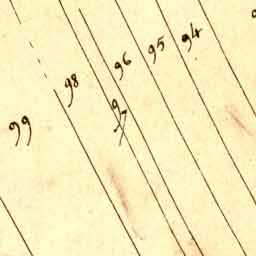 99
98
97
96
95
94